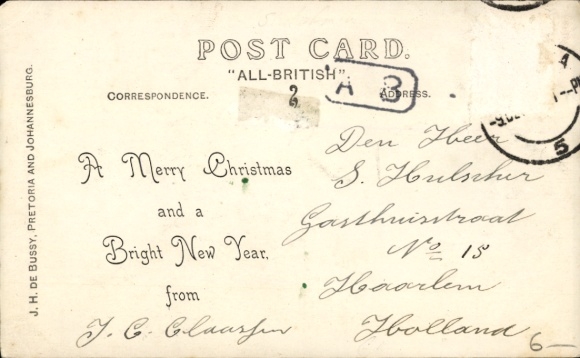 POST CARD.
"ALL-BRITISH".
A B
CORRESPONDENCE.
ADDRESS.
J. H. DE BUSSY, PRETORIA AND JOHANNESBURG.
A Merry Christmas
and a
Bright New Year,
from
J. C. Claassen
Den Heer
S. Hulscher
Gasthuisstraat
No 15
Haarlem
Holland
6—